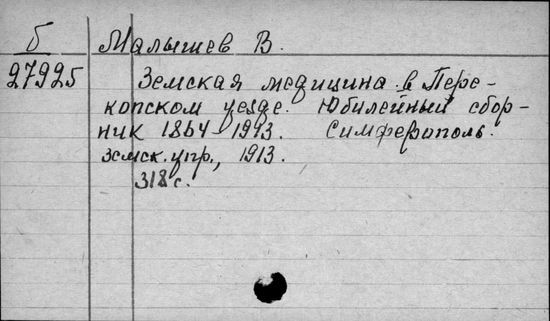 б
27925
Малышев В.
Земская медицина в Пере-
копском уезде. Юбилейный сбор-
ник 1864-1913. Симферополь.
земск. упр., 1913.
318 с.